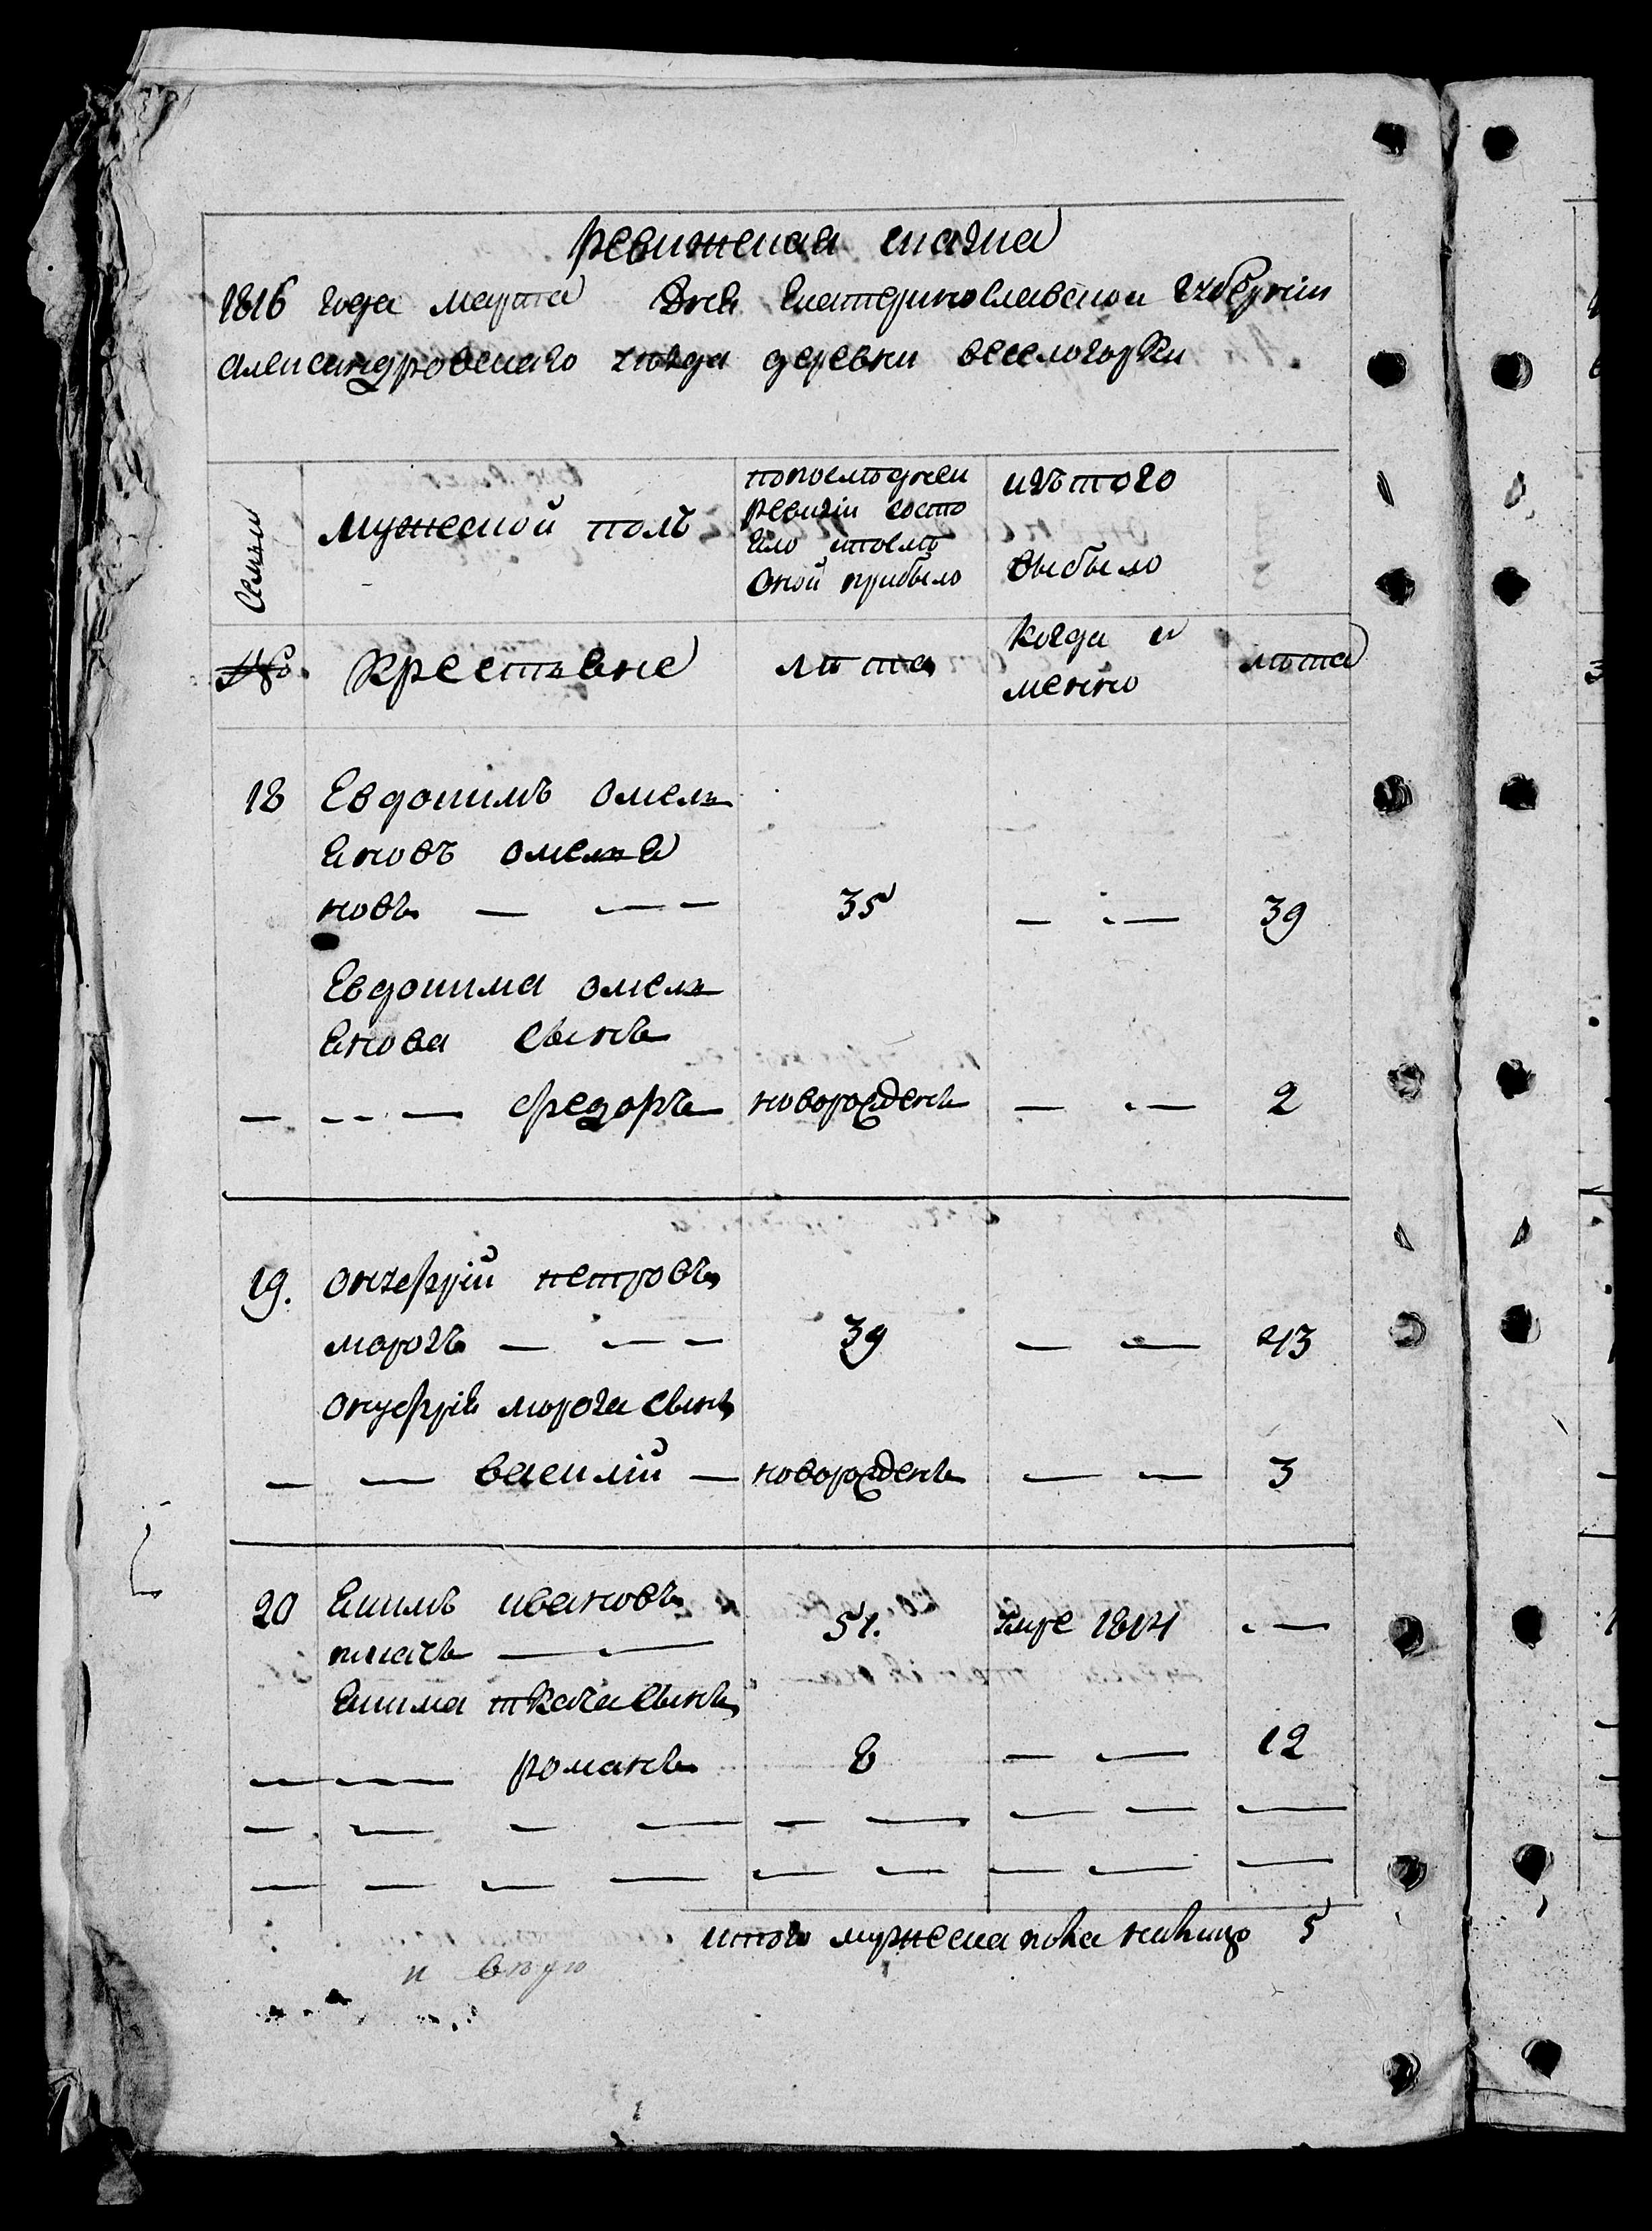 ревижская скаска
1816 года марта дня екатеринославской губернiи
александровскаго уезда деревни веселогорки
Семьи
мужеской полъ
попоследней
ревизiи состо
яло ипосле
оной прибыло
изътого
выбыло
№
крестьяне
лета
когда и
менно
лета
18 Евдокимъ омель
яновъ омелья
новъ — — — 35 — — 39
Евдокима омель
янова сынъ
— — — федоръ новорожденъ — — 2
19. онуфрiй петровъ
морозъ — — — 39 — — 43
онуфрiя мороза сынъ
— — василiй — новорожденъ — — 3
20 якимъ ивановъ 51. умре 1814 —
ткачъ — —
якима ткача сынъ
— — романъ 8 — — 12
— — — — — — — — —
— — — — — — — — —
итого мужеска пола налицо 5